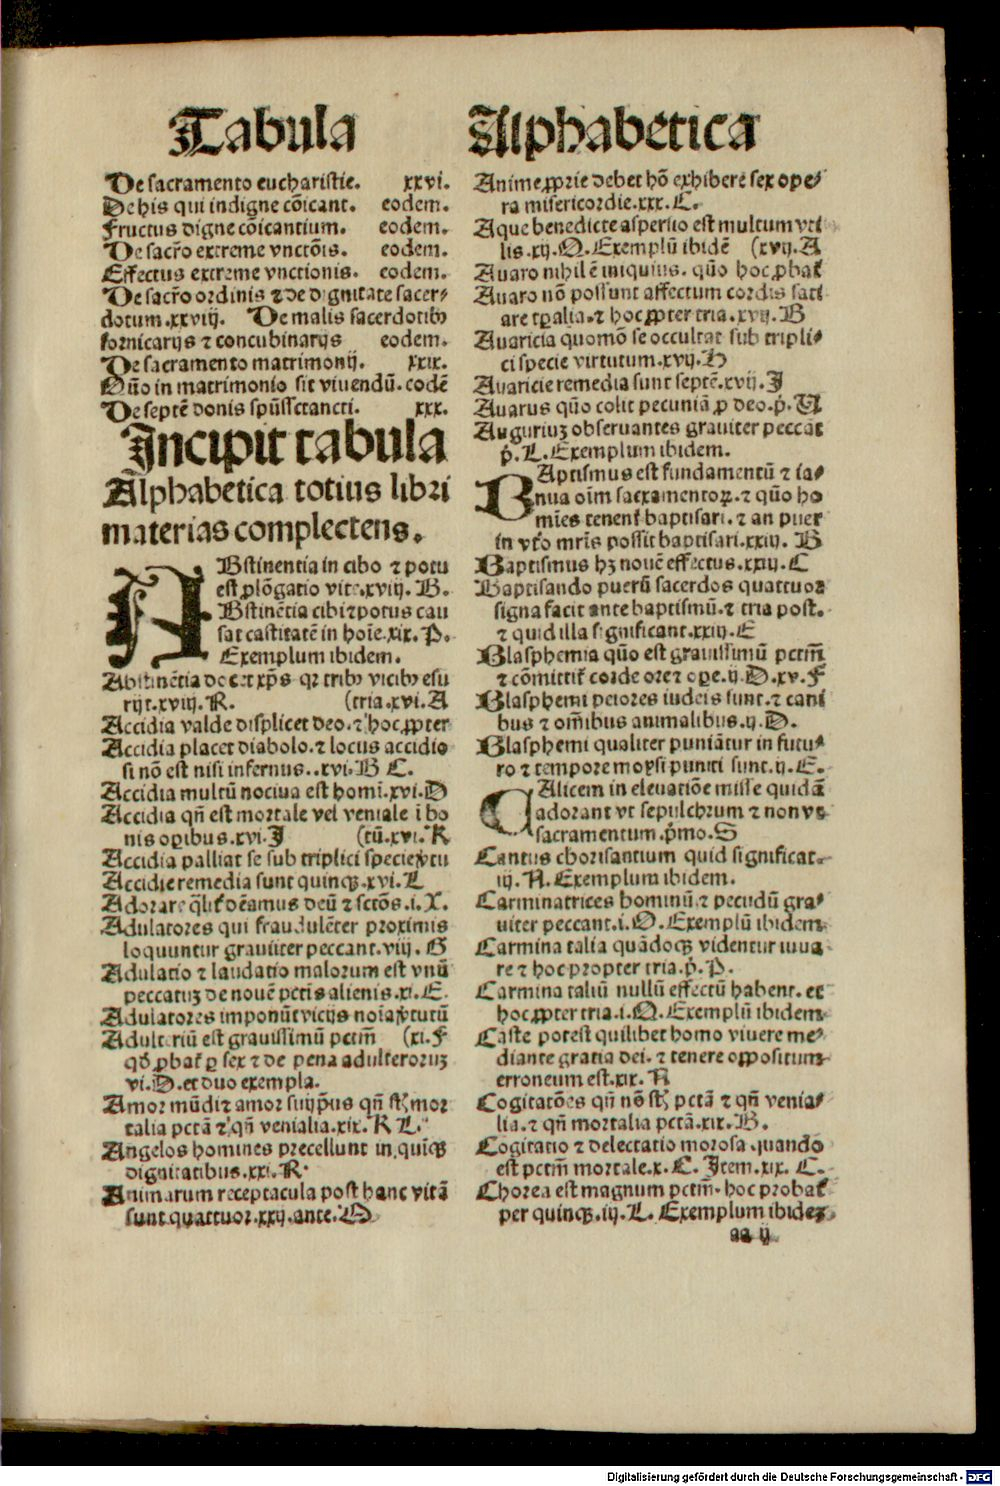 Tabula Alphabetica
De sacramento eucharistie. xxvi.
De his qui indigne cõicant. eodem.
Fructus digne cõicantium. eodem.
De sacrõ extreme vnctõis. eodem.
Effectus extreme vnctionis. eodem.
De sacrõ ordinis ⁊ de dignitate sacer⸗
dotum.xxviij. De malis sacerdotibꝰ
fornicarijs ⁊ concubinarijs eodem.
De sacramento matrimonij. xxix.
Quõ in matrimonio sit viuendũ. eodẽ
De septẽ donis spũssctancti. xxx.
Incipit tabula
Alphabetica totius libri
materias complectens.
ABstinentia in cibo ⁊ potu
est ꝓlõgatio vite.xviij. B.
Abstinẽtia cibi ⁊ potus cau
sat castitatẽ in hoĩe.xix. P.
Exemplum ibidem.
Abstinẽtia docet xp̃s qr tribꝰ vicibꝰ esu
rijt.xviij. R. (tria.xvi. A
Accidia valde displicet deo.⁊ hoc ꝓpter
Accidia placet diabolo.⁊ locus accidio
si nõ est nisi infernus..xvi. B C.
Accidia multũ nociua est homĩ.xvi. D
Accidia qñ est mortale vel veniale ĩ bo
nis oꝑibus.xvi. I (tũ.xvi. K
Accidia palliat se sub triplici specie ṽtu
Accidie remedia sunt quinqꝫ.xvi. L
Adorare q̃lit̃ dẽamus deũ ⁊ sctõs.i. X.
Adulatores qui fraudulẽter proximis
loquuntur grauiter peccant.viij. G
Adulatio ⁊ laudatio malorum est vnũ
peccatuꝫ de nouẽ pctĩs alienis.xi. E.
Adulatores imponũt vicijs noĩa ṽtutũ
Adulteriũ est grauissimũ pctm̃ (xi. F
qđ ꝓbat̃ ꝑ sex ⁊ de pena adulteroruꝫ
vi. D. et duo exempla.
Amor mũdi ⁊ amor suijp̃ius qñ st̃ mor
talia pctã ⁊ qñ venialia.xix. K L.
Angelos homines precellunt in quĩqꝫ
dignitatibus.xxi. R
Animarum receptacula post hanc vitã
sunt quattuor.xxij.ante. O
Anime ꝓprie debet hõ exhibere sex ope⸗
ra misericordie.xxx. C.
Aque benedicte aspersio est multum vti
lis.xij. O. Exemplũ ibidẽ (xvij. A
Auaro nihil ẽ iniquius. quõ hoc ꝓbat̃
Auaro nõ possunt affectum cordis sati
are tꝑalia.⁊ hoc ꝓpter tria.xvij. B
Auaricia quomõ se occultat sub tripli⸗
ci specie virtutum.xvij. H
Auaricie remedia sunt septẽ.xvij. I
Auarus quõ colit pecuniã ꝓ deo.p̃. U
Auguriuꝫ obseruantes grauiter peccãt
p̃. L. Exemplum ibidem.
BAptismus est fundamentũ ⁊ ia⸗
nua oĩm sacramentoꝝ.⁊ quõ ho
mĩes tenent̃ baptisari.⁊ an puer
in vtõ mrĩs possit baptisari.xxiij. B
Baptismus hꝫ nouẽ effectus.xxiij. C
Baptisando puerũ sacerdos quattuor
signa facit ante baptismũ.⁊ tria post.
⁊ quid illa significant.xxiij. E
Blasphemia quõ est grauissimũ pctm̃
⁊ cõmittit̃ corde ore ⁊ oꝑe.ij. D.xv. F
Blasphemi peiores iudeis sunt.⁊ cani
bus ⁊ om̃ibus animalibus.ij. D.
Blasphemi qualiter puniãtur in futu⸗
ro ⁊ tempore morsi puniti sunt.ij. E.
CAlicem in eleuatiõe misse quidã
adorant vt sepulchrum ⁊ non vt
sacramentum.p̃mo. S
Cantus chorisantium quid significat.
iij. N. Exemplum ibidem.
Carminatrices hominũ ⁊ pecudũ gra⸗
uiter peccant.i. O. Exemplũ ibidem
Carmina talia quãdoqꝫ videntur iuua
re ⁊ hoc propter tria.p̃. P.
Carmina taliũ nullũ effectũ habent. et
hoc ꝓpter tria.i. Q. Exemplũ ibidem
Caste potest quilibet homo viuere me⸗
diante gratia dei.⁊ tenere oppositum
erroneum est.xix. N
Cogitatões qñ nõ st̃ pctã ⁊ qñ venia⸗
lia.⁊ qñ mortalia pctã.xix. B.
Cogitatio ⁊ delectatio morosa quando
est pctm̃ mortale.x. C. Item.xix. C.
Chorea est magnum pctm̃. hoc probat̃
per quinqꝫ.iij. L. Exemplum ibideꝫ.
aa ij
Digitalisierung gefördert durch die Deutsche Forschungsgemeinschaft - DFG